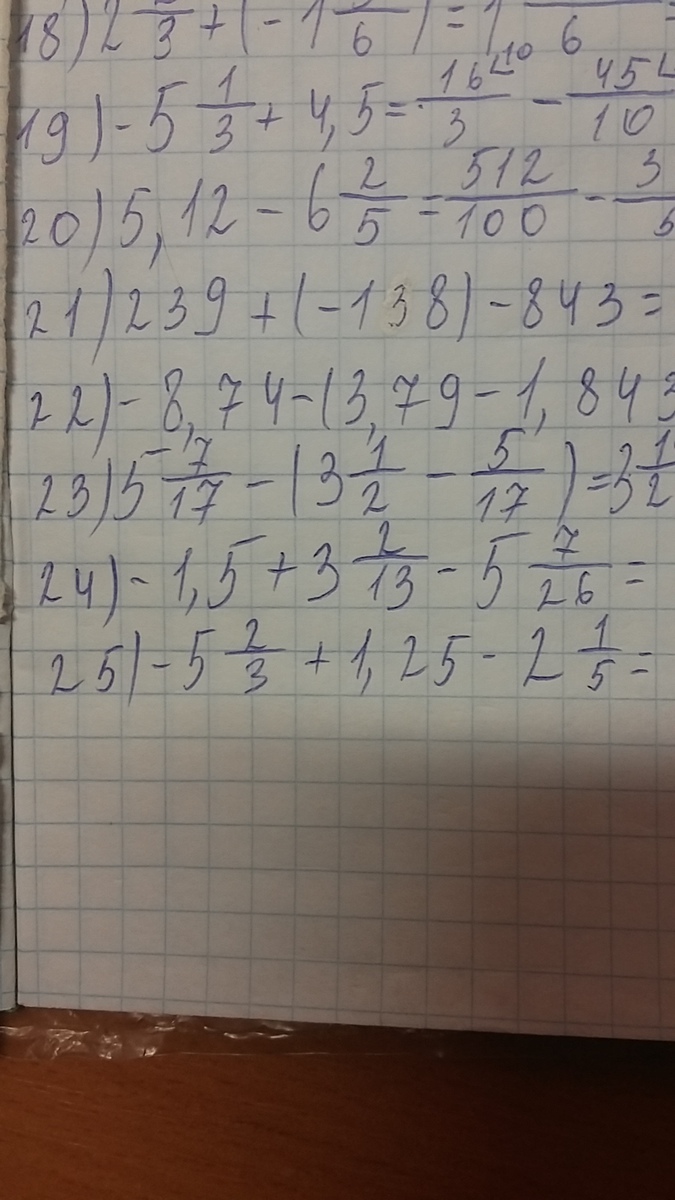 18) 2 /3 + (-1 /6) = 1 /6 =
19) -5 1/3 + 4,5 = 16^10/3 - 45/10
20) 5,12 - 6 2/5 = 512/100 - 3/5
21) 239 + (-138) - 843 =
22) -8,74 - (3,79 - 1,843
23) 5 7/17 - (3 1/2 - 5/17) = 3 1/2
24) -1,5 + 3 2/13 - 5 7/26 =
25) -5 2/3 + 1,25 - 2 1/5 =